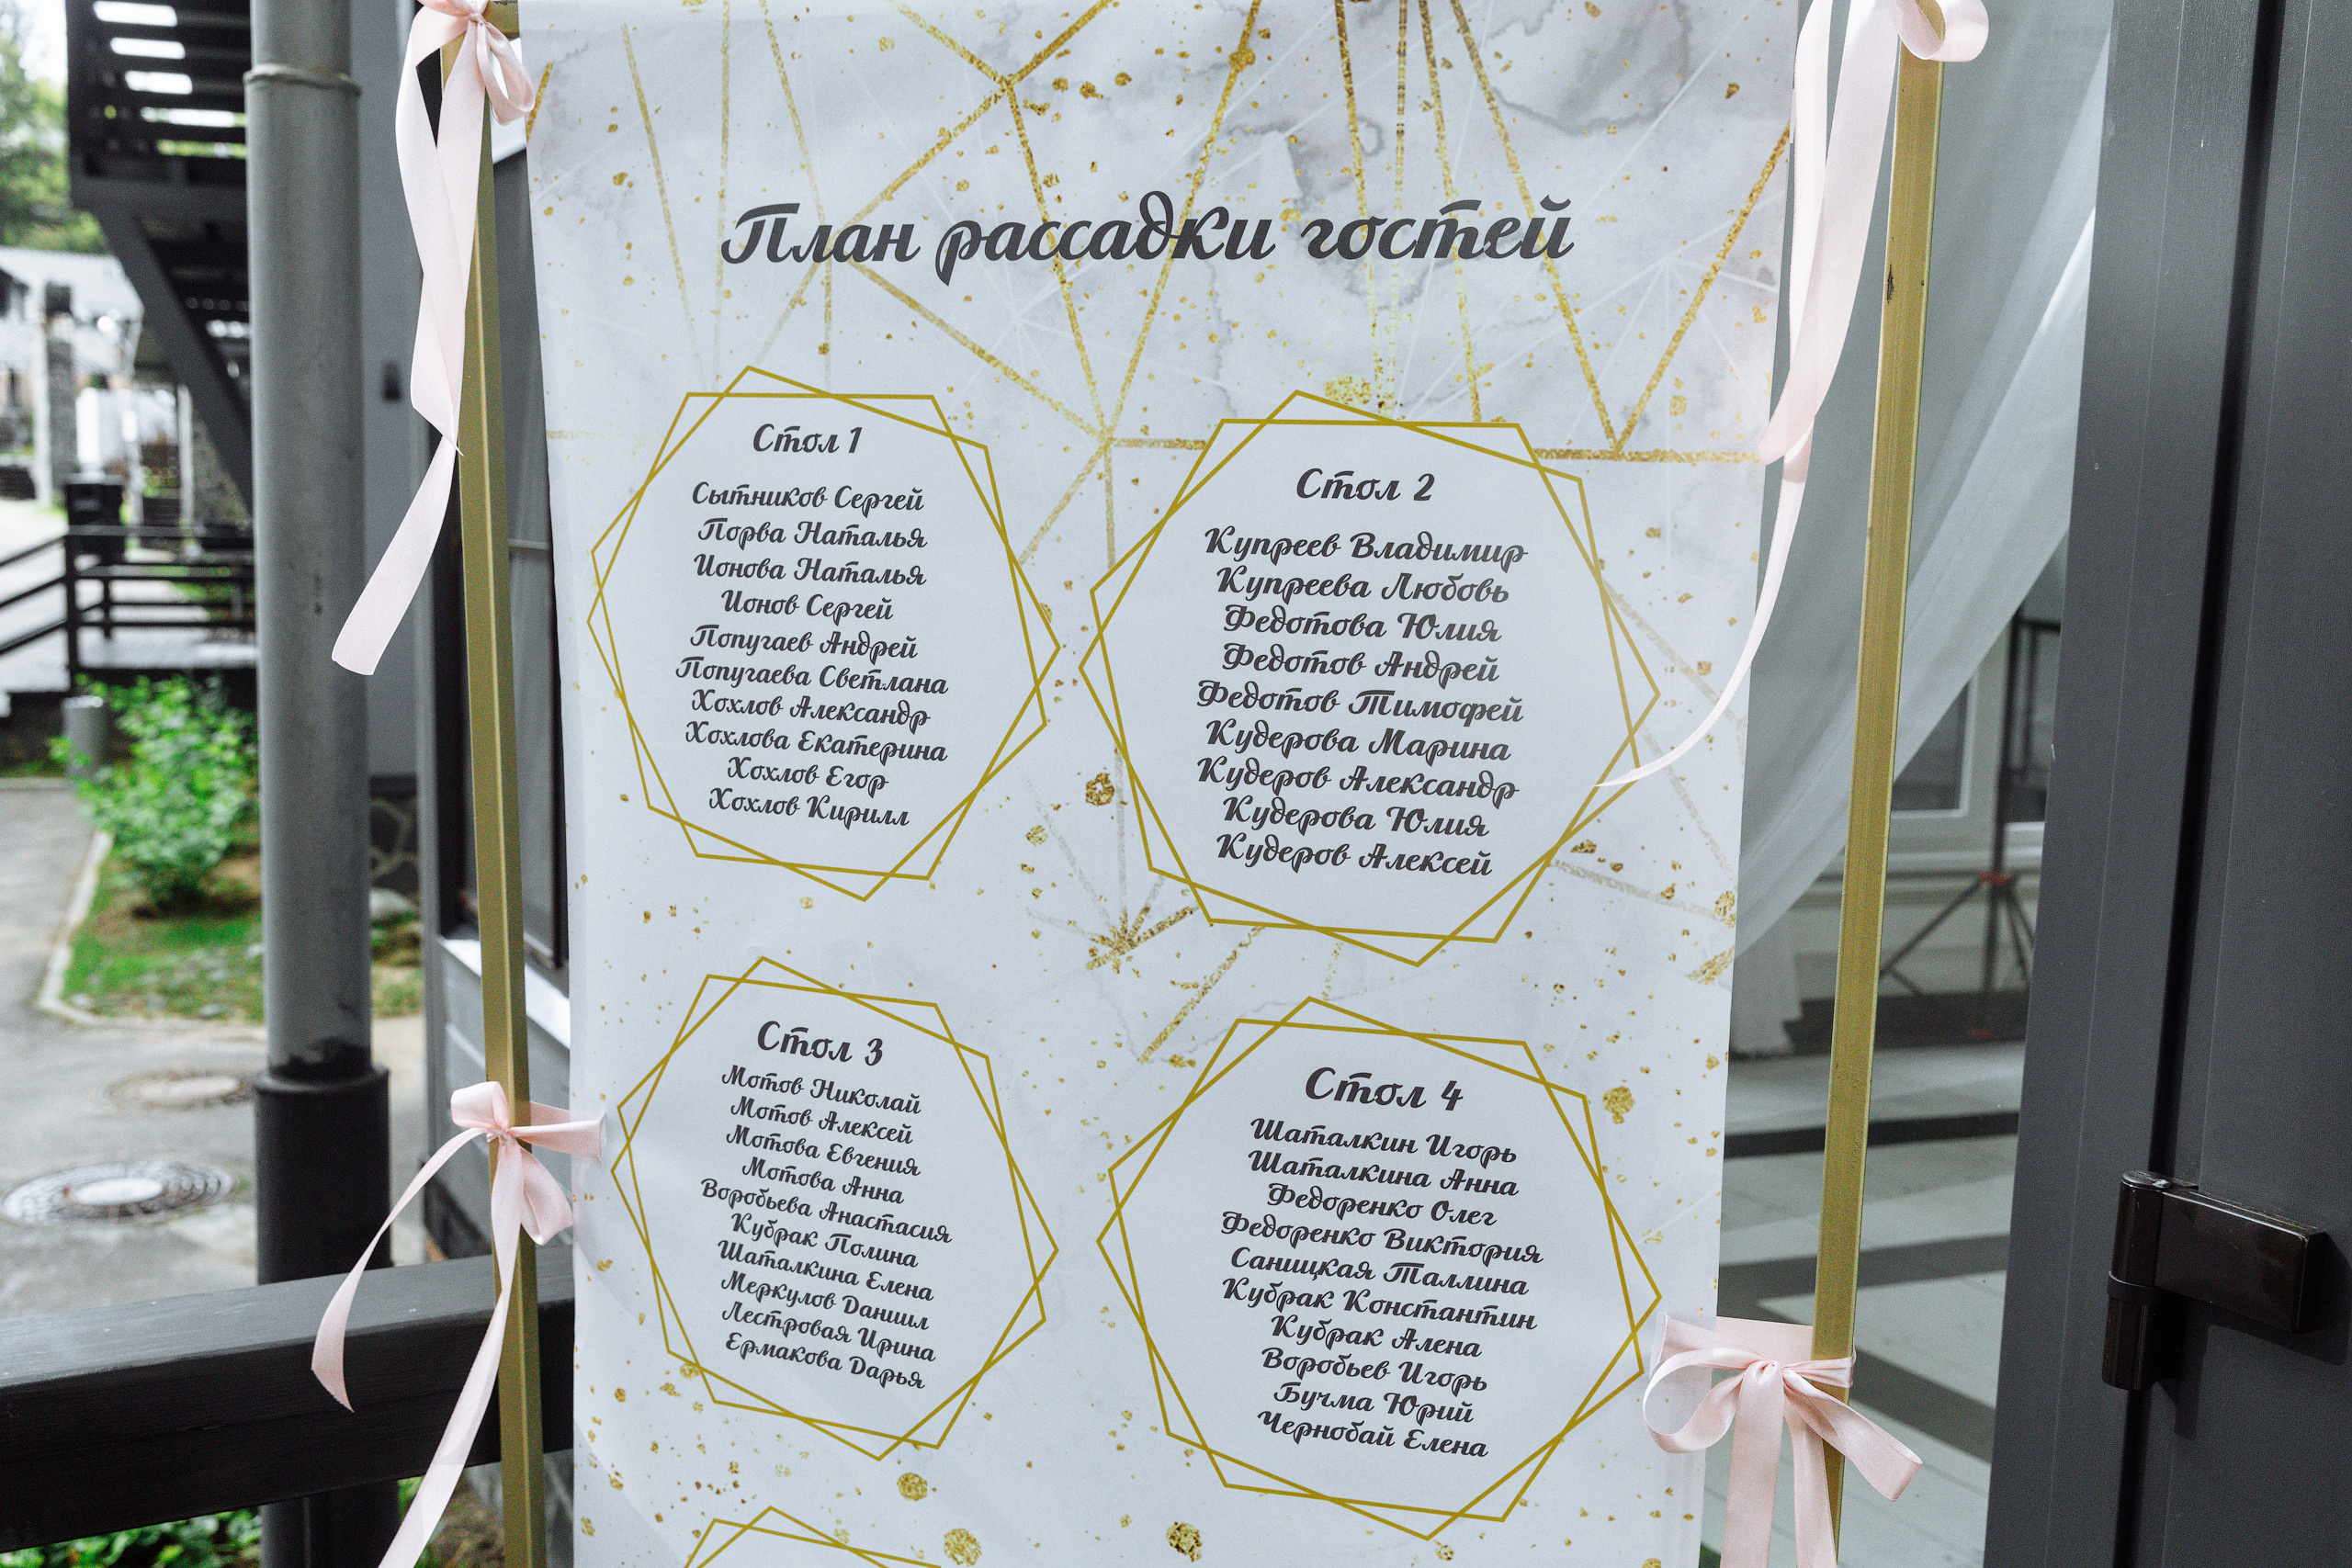 План рассадки гостей
Стол 1
Сытников Сергей
Порва Наталья
Ионова Наталья
Ионов Сергей
Попугаев Андрей
Попугаева Светлана
Хохлов Александр
Хохлова Екатерина
Хохлов Егор
Хохлов Кирилл
Стол 2
Купреев Владимир
Купреева Любовь
Федотова Юлия
Федотов Андрей
Федотов Тимофей
Кудерова Марина
Кудеров Александр
Кудерова Юлия
Кудеров Алексей
Стол 3
Мотов Николай
Мотов Алексей
Мотова Евгения
Мотова Анна
Воробьева Анастасия
Кубрак Полина
Шаталкина Елена
Меркулов Даниил
Лестровая Ирина
Ермакова Дарья
Стол 4
Шаталкин Игорь
Шаталкина Анна
Федоренко Олег
Федоренко Виктория
Саницкая Таллина
Кубрак Константин
Кубрак Алена
Воробьев Игорь
Бучма Юрий
Чернобай Елена